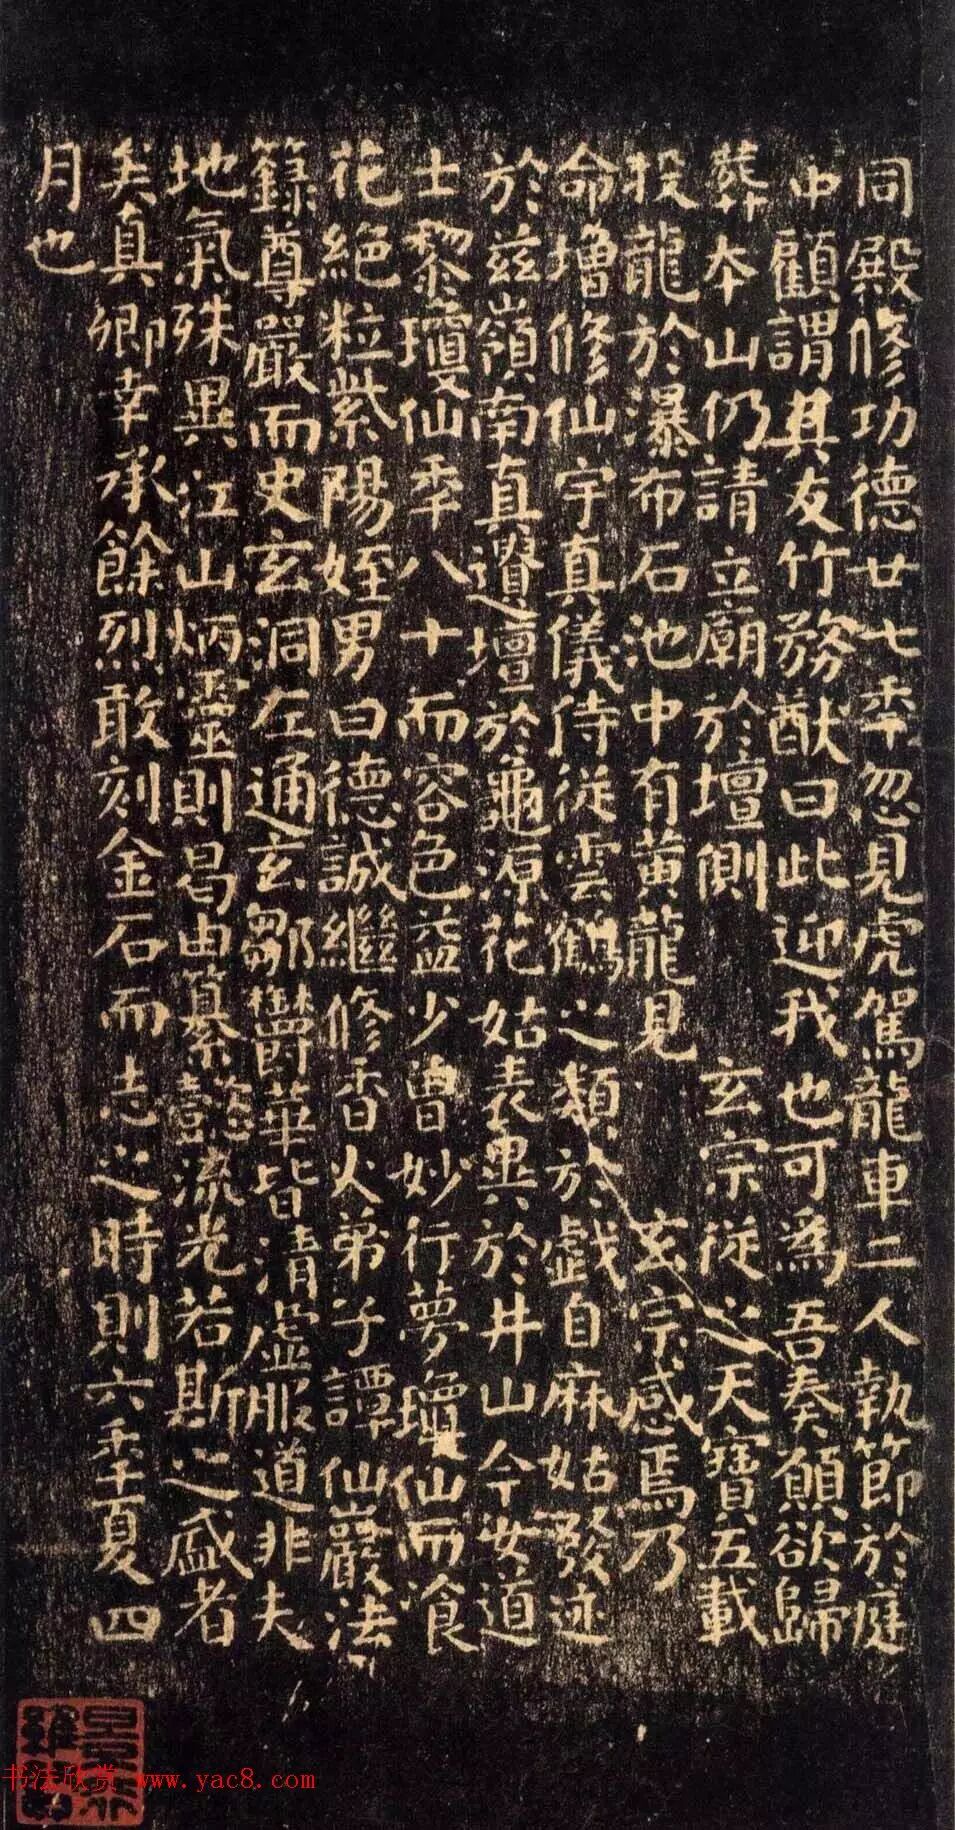 同殿修功德廿七年忽見虎駕龍車二人執節於庭
中顧謂其友竹務猷曰此迎我也可為吾奏願欲歸
葬本山仍請立廟於壇側 玄宗從之天寶五載
投龍於瀑布石池中有黄龍見 玄宗感焉乃
命增修仙宇真儀侍從雲鶴之類於戲自麻姑發迹
於兹嶺南真遺壇於龜源花姑表異於井山今女道
士黎瓊仙年八十而容色益少曾妙行夢瓊仙而飡
花絶粒紫陽姪男曰德誠繼修香火弟子譚仙巖法
籙尊嚴而史玄洞左通玄鄒鬱華皆清虛服道非夫
地氣殊異江山炳靈則曷由纂懿流光若斯之盛者
矣真卿幸承餘烈敢刻金石而志之時則六年夏四
月也
书法欣赏 www.yac8.com